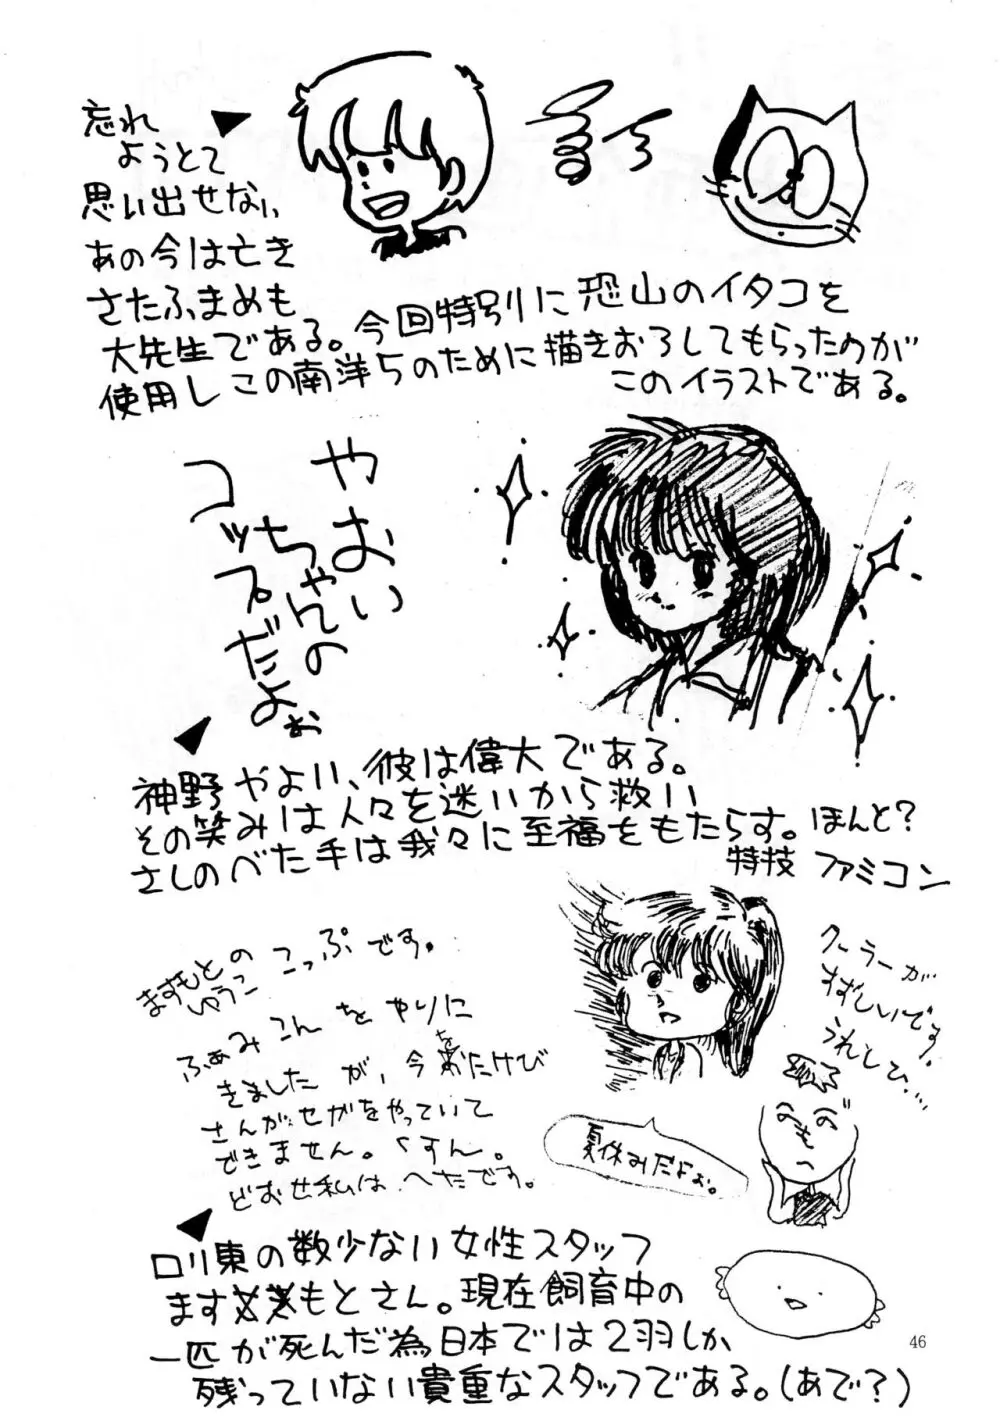 忘れ
ようとて
思い出せない
あの今は亡き
さたふまめも
大先生である。今回特別に恐山のイタコを
使用しこの南洋5のために描きおろしてもらったのが
このイラストである。
やおい
ちゃんの
コップだよぉ
神野やよい、彼は偉大である。
その笑みは人々を迷いから救い
さしのべた手は我々に至福をもたらす。ほんと?
特技 ファミコン
ますもとの
ゆうこ
こっぷです。
ふぁみこんをやりに
きましたが、今おたけび
を
さんがセガをやっていて
できません。くすん。
どおせ私はへたです。
クーラーが
すずしいです。
うれとひ....
夏休みだよぉ。
ロリ東の数少ない女性スタッフ
ますもとさん。現在飼育中の
一匹が死んだ為日本では2羽しか
残っていない貴重なスタッフである。(あで?)
46